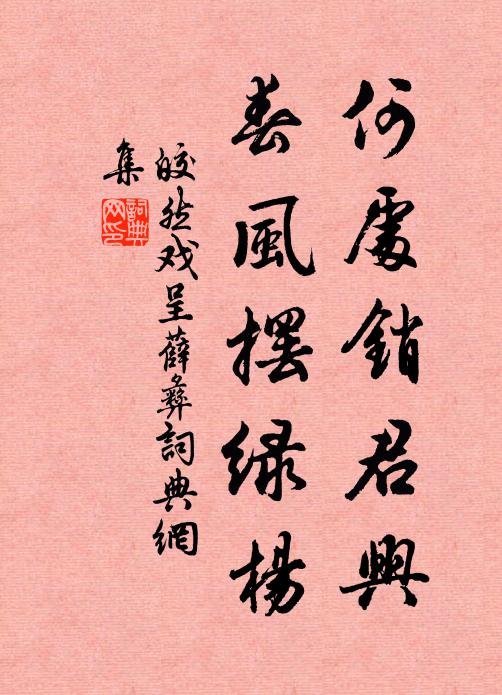 何處銷君興
春風擺綠楊
皎然戏呈薛彝詞典網
集
詞典網印